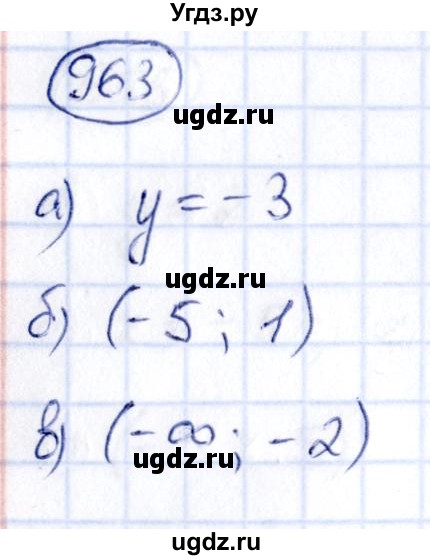 Угдз.ру
963
ugdz.ru
а) y = -3
ugdz.ru
б) (-5; 1)
в) (-∞; -2)
ugdz.ru
ugdz.ru